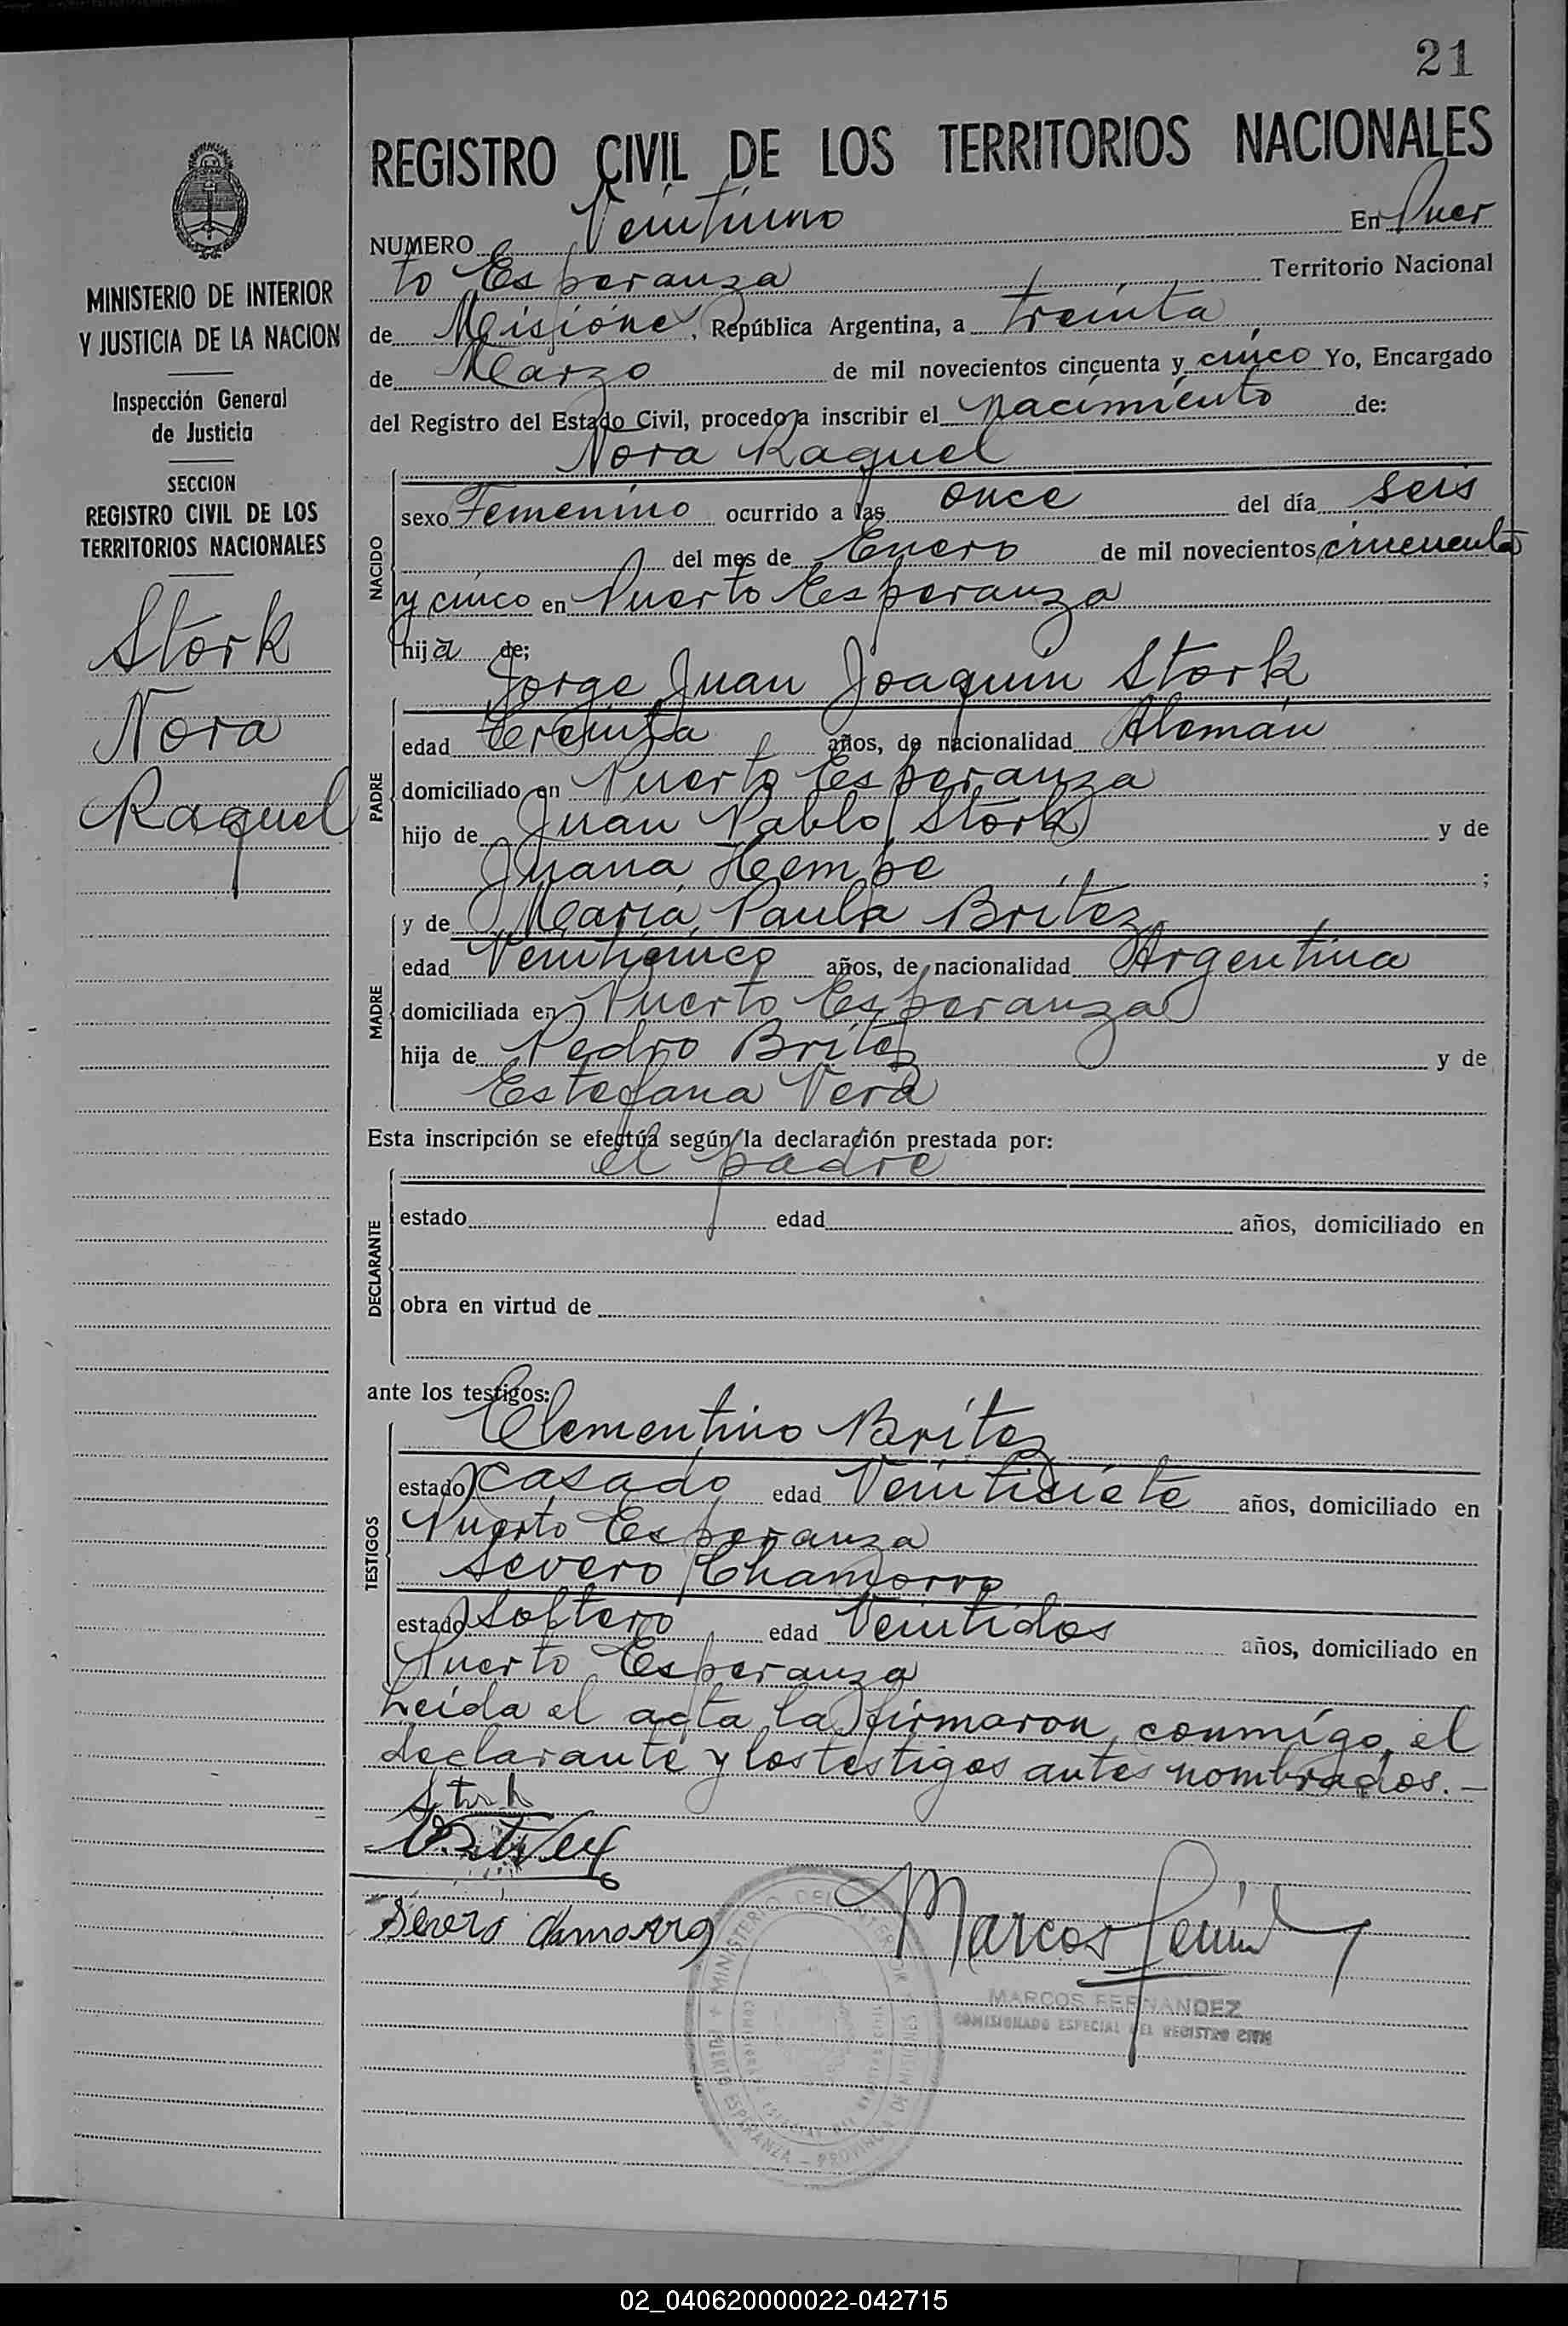 21
REGISTRO CIVIL DE LOS TERRITORIOS NACIONALES
NUMERO Veintiuno En Puer
to Esperanza Territorio Nacional
de Misiones, República Argentina, a treinta
de Marzo de mil novecientos cincuenta y cinco Yo, Encargado
del Registro del Estado Civil, procedo a inscribir el nacimiento de:
Nora Raquel
sexo Femenino ocurrido a las once del día seis
del mes de Enero de mil novecientos cincuenta
y cinco en Puerto Esperanza
hija de:
NACIDO
Jorge Juan Joaquin Stork
edad treinta años, de nacionalidad Alemán
domiciliado en Puerto Esperanza
hijo de Juan Pablo Stork y de
Juana Hempe ;
PADRE
y de María Paula Britez
edad Veinticinco años, de nacionalidad Argentina
domiciliada en Puerto Esperanza
hija de Pedro Britez y de
Estefana Vera
MADRE
Esta inscripción se efectúa según la declaración prestada por:
el padre
estado edad años, domiciliado en
obra en virtud de
DECLARANTE
ante los testigos:
Clementino Britez
estado casado edad Veintisiete años, domiciliado en
Puerto Esperanza
Severo Chamorro
estado Soltero edad Veintidos años, domiciliado en
Puerto Esperanza
TESTIGOS
Leída el acta la firmaron conmigo, el
declarante y los testigos antes nombrados.—
Stork
Severo Chamorro
Marcos
MARCOS FERNANDEZ
COMISIONADO ESPECIAL DEL REGISTRO CIVIL
MINISTERIO DEL INTERIOR
PUERTO ESPERANZA - PROVINCIA DE MISIONES
MINISTERIO DE INTERIOR
Y JUSTICIA DE LA NACION
Inspección General
de Justicia
SECCION
REGISTRO CIVIL DE LOS
TERRITORIOS NACIONALES
Stork
Nora
Raquel
02_040620000022-042715